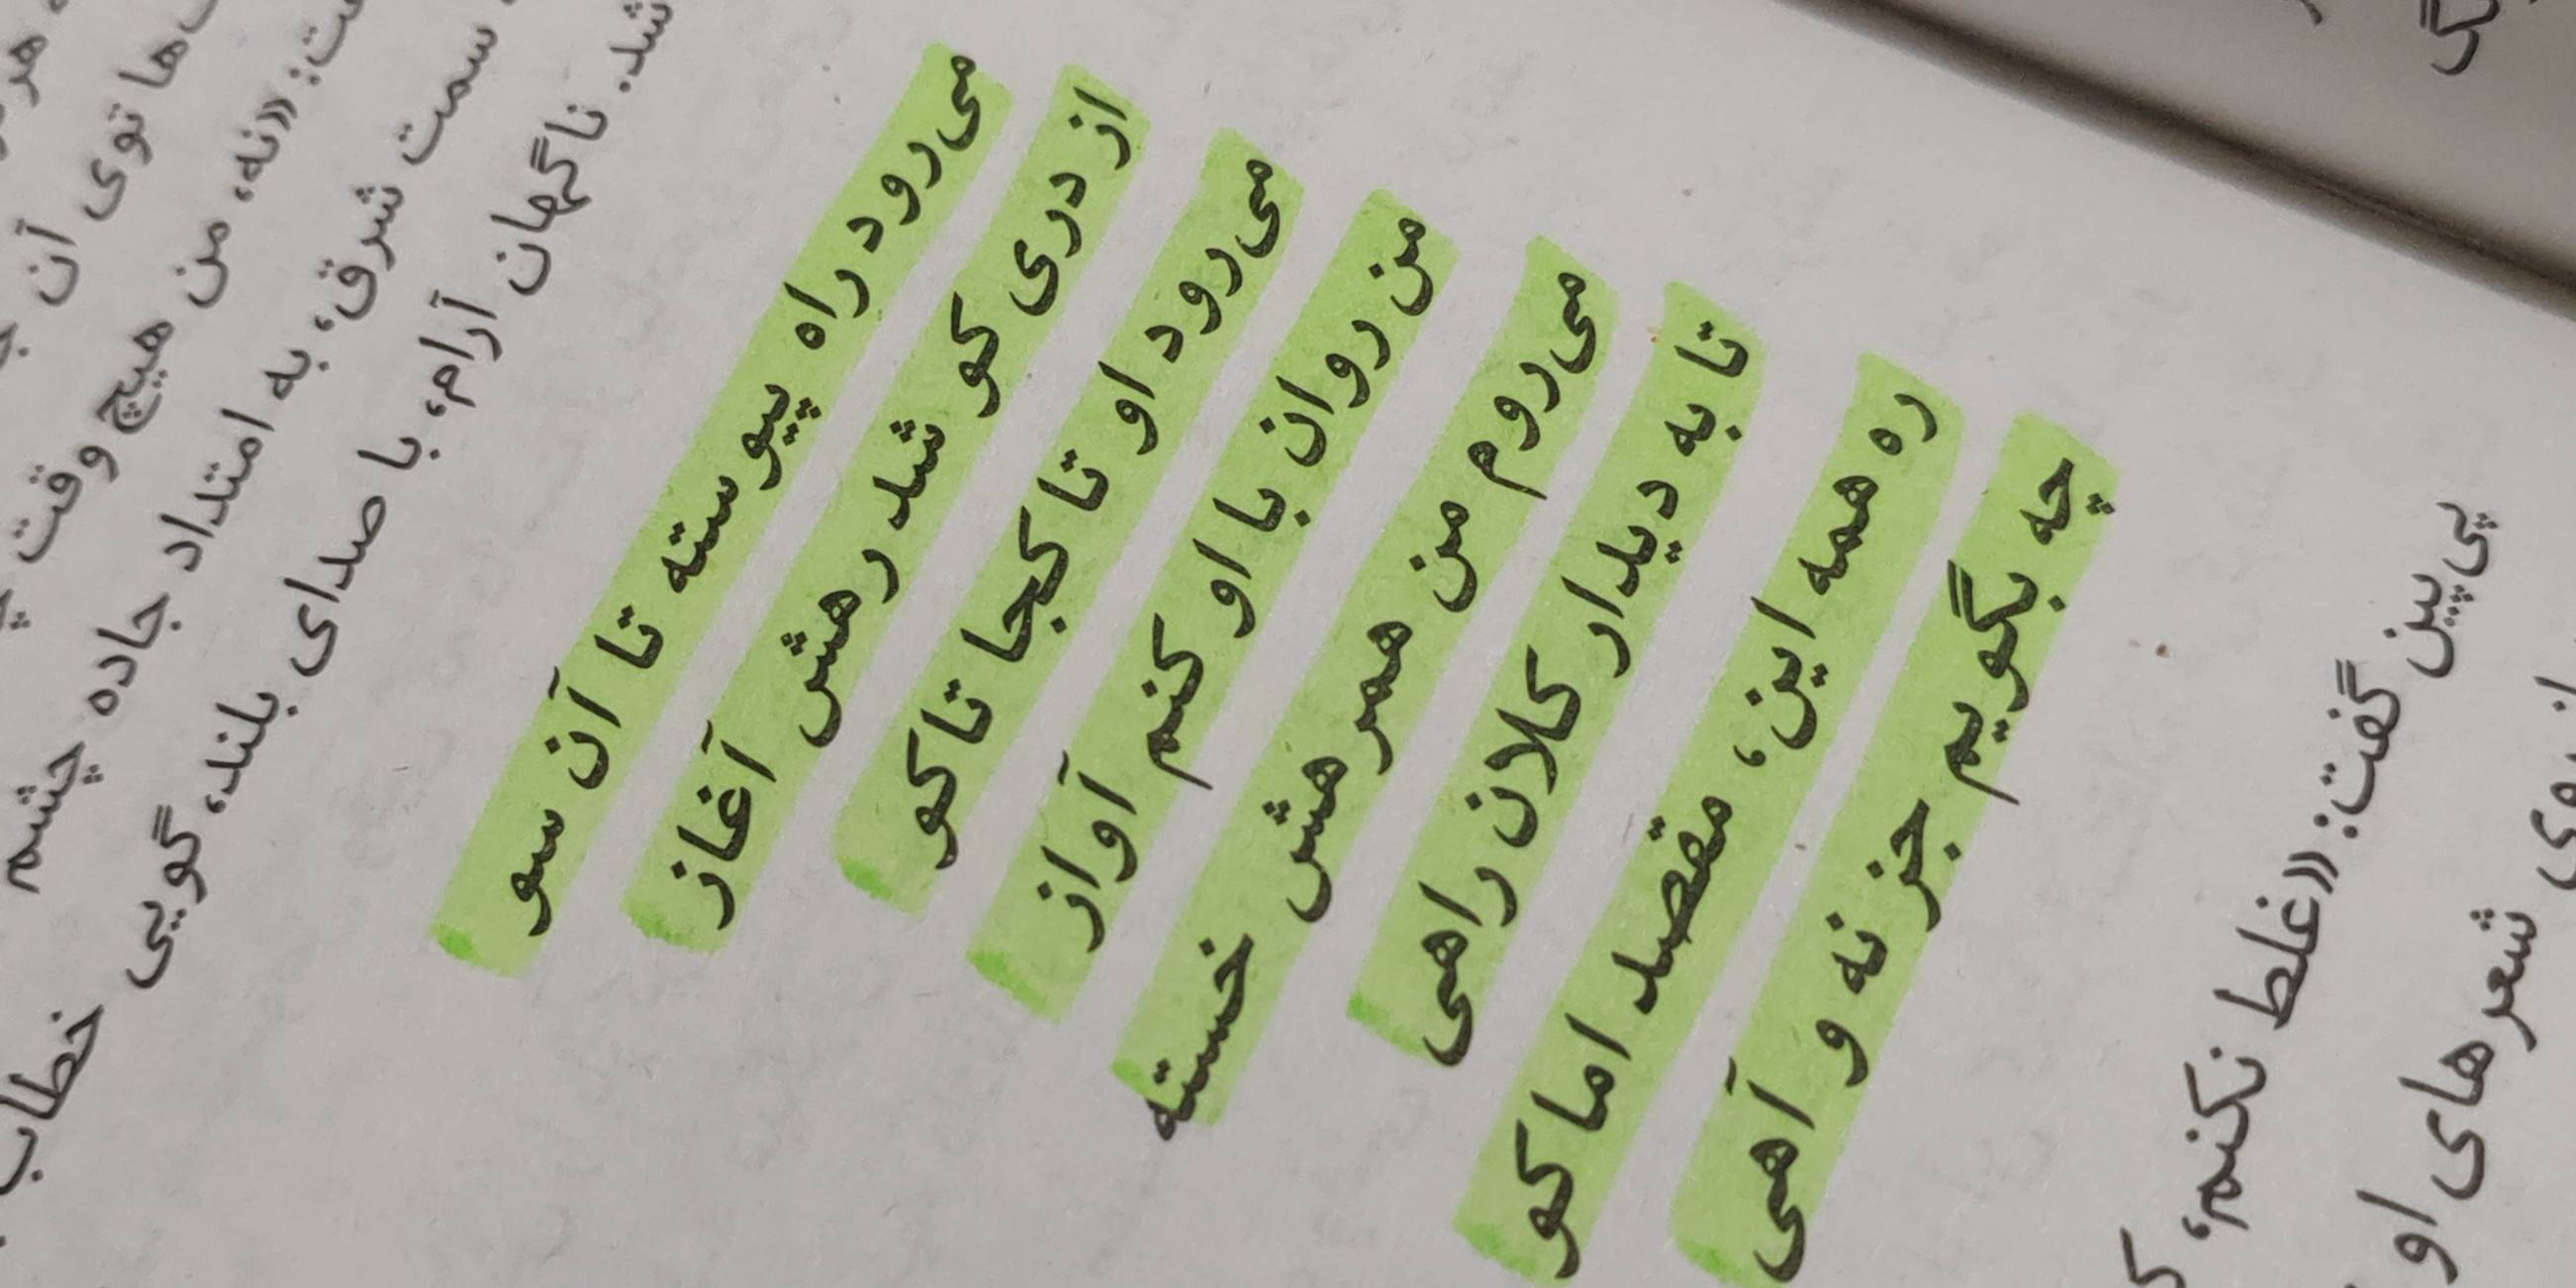 هر
ها توی آن
ت: «نه، من هیچ وقت
سمت شرق، به امتداد جاده چشم
شد. ناگهان آرام، با صدای بلند، گویی خطاب
می‌رود راه پیوسته تا آن سو
از دری کو شد رهش آغاز
می‌رود او تا کجا تا کو
من روان با او کنم آواز
می‌روم من همرهش خسته
تا به دیدار کلان راهی
ره همه این، مقصد اما کو
چه بگویم جز نه و آهی
پی‌پین گفت: «غلط نکنم، ک
شعرهای او
گ